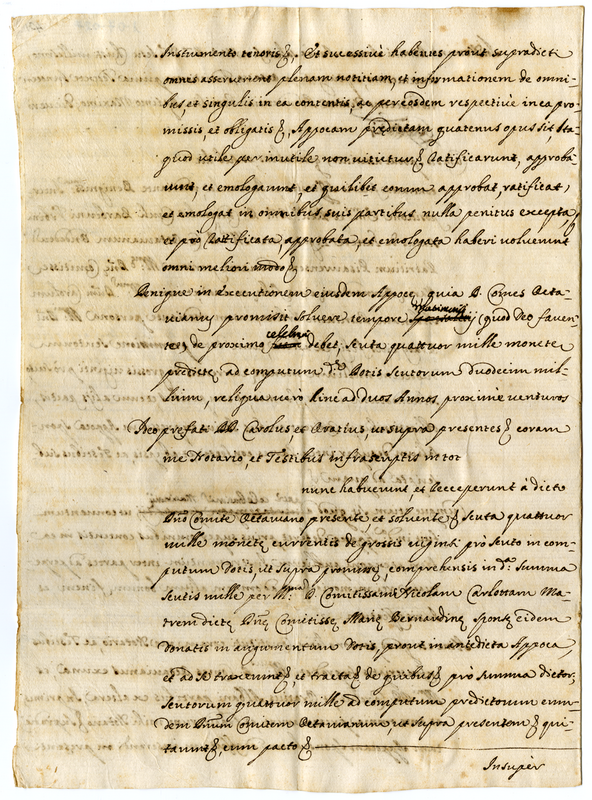 Instrumento tenoris &, Et successive habentes prout supradicti
omnes asseruerunt plenam notitiam, et informationem de omni-
bus, et singulis in ea contentis, ac per eosdem respective in ea pro-
missis, et obligatis &, Appocam predictam quatenus opus sit, Ita
quod utile per inutile non vitietur & Ratificarunt, approba-
runt, et emologarunt, et quilibet eorum approbat, ratificat,
et emologat in omnibus suis partibus nulla penitus excepta,
et pro Rattificata, approbata, et emologata haberi voluerunt
omni meliori modo &
Denique in executionem eiusdem Appoce, quia D. Comes Octa-
vianus promisit solvere tempore Matrimonij (quod Deo faven-
te, de proximo celebrari debet, scuta quattuor mille monete
predicte ad computum d.e Dotis scutorum duodecim mil-
lium, reliqua vero hinc ad duos Annos proxime venturos
Ideo prefati DD. Carolus, et Oratius, ut supra presentes & coram
me Notario, et Testibus infrascriptis in tot
nunc habuerunt et Receperunt à dicto
Dno Comite Octaviano presente, et solvente & scuta quattuor
mille monete currentis de grossis viginti pro scuto in com-
putum Dotis, ut supra promisse, comprehensis in d.a summa
scutis mille per D. Comitissam Nicolam Carlottam Ma-
trem dicte Dne Comitisse Marie Bernardine sponse eidem
donatis in augumentum Dotis, prout in antedicta Appoca,
et ad se traxerunt & et tracta & de quibus & pro summa dictor.
scutorum quattuor mille ad computum predictorum eun-
dem Dnum Comitem Octavianum, ut supra presentem & qui-
tarunt &, cum pacto &
Insuper